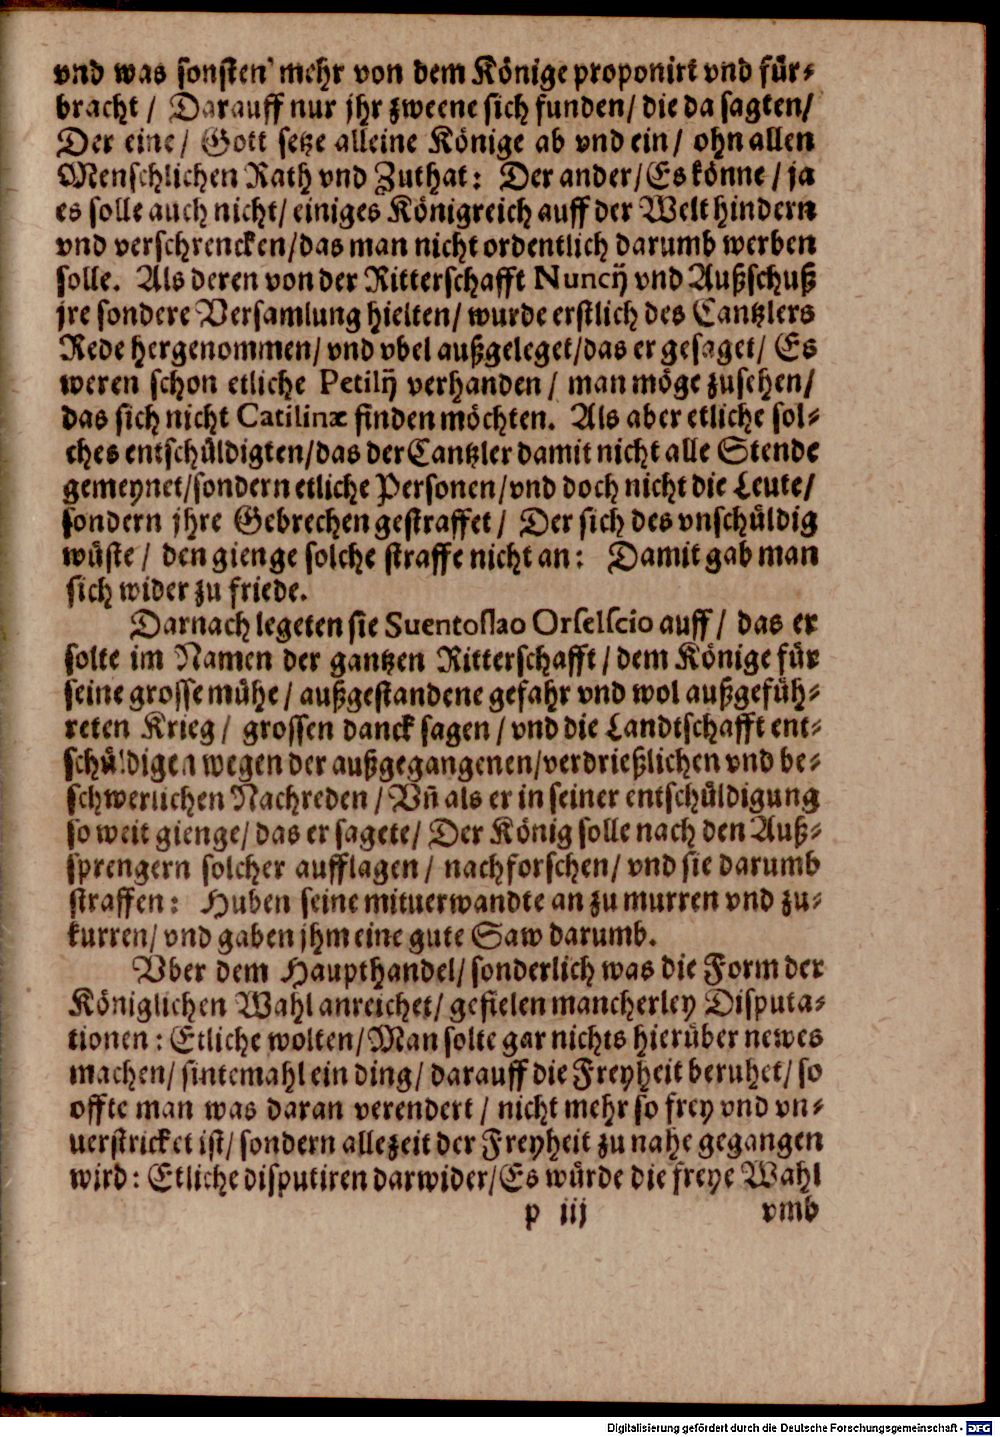 vnd was sonsten mehr von dem Könige proponirt vnd für-
bracht / Darauff nur jhr zweene sich funden / die da sagten /
Der eine / Gott setze alleine Könige ab vnd ein / ohn allen
Menschlichen Rath vnd Zuthat: Der ander / Es könne / ja
es solle auch nicht / einiges Königreich auff der Welt hindern
vnd verschrencken / das man nicht ordentlich darumb werben
solle. Als deren von der Ritterschafft Nuncij vnd Außschuß
jre sondere Versamlung hielten / wurde erstlich des Cantzlers
Rede hergenommen / vnd vbel außgeleget / das er gesaget / Es
weren schon etliche Petilij verhanden / man möge zusehen /
das sich nicht Catilinæ finden möchten. Als aber etliche sol-
ches entschüldigten / das der Cantzler damit nicht alle Stende
gemeynet / sondern etliche Personen / vnd doch nicht die Leute /
sondern jhre Gebrechen gestraffet / Der sich des vnschüldig
wüste / den gienge solche straffe nicht an: Damit gab man
sich wider zu friede.
Darnach legeten sie Suentoslao Orselscio auff / das er
solte im Namen der gantzen Ritterschafft / dem Könige für
seine grosse mühe / außgestandene gefahr vnd wol außgefüh-
reten Krieg / grossen danck sagen / vnd die Landtschafft ent-
schüldigen wegen der außgegangenen / verdrießlichen vnd be-
schwerlichen Nachreden / Vñ als er in seiner entschüldigung
so weit gienge / das er sagete / Der König solle nach den Auß-
sprengern solcher aufflagen / nachforschen / vnd sie darumb
straffen: Huben seine mituerwandte an zu murren vnd zu-
kurren / vnd gaben jhm eine gute Saw darumb.
Vber dem Haupthandel / sonderlich was die Form der
Königlichen Wahl anreichet / gefielen mancherley Disputa-
tionen: Etliche wolten / Man solte gar nichts hierüber newes
machen / sintemahl ein ding / darauff die Freyheit beruhet / so
offte man was daran verendert / nicht mehr so frey vnd vn-
uerstricket ist / sondern allezeit der Freyheit zu nahe gegangen
wird: Etliche disputiren darwider / Es würde die freye Wahl
p iij vmb
Digitalisierung gefördert durch die Deutsche Forschungsgemeinschaft - DFG